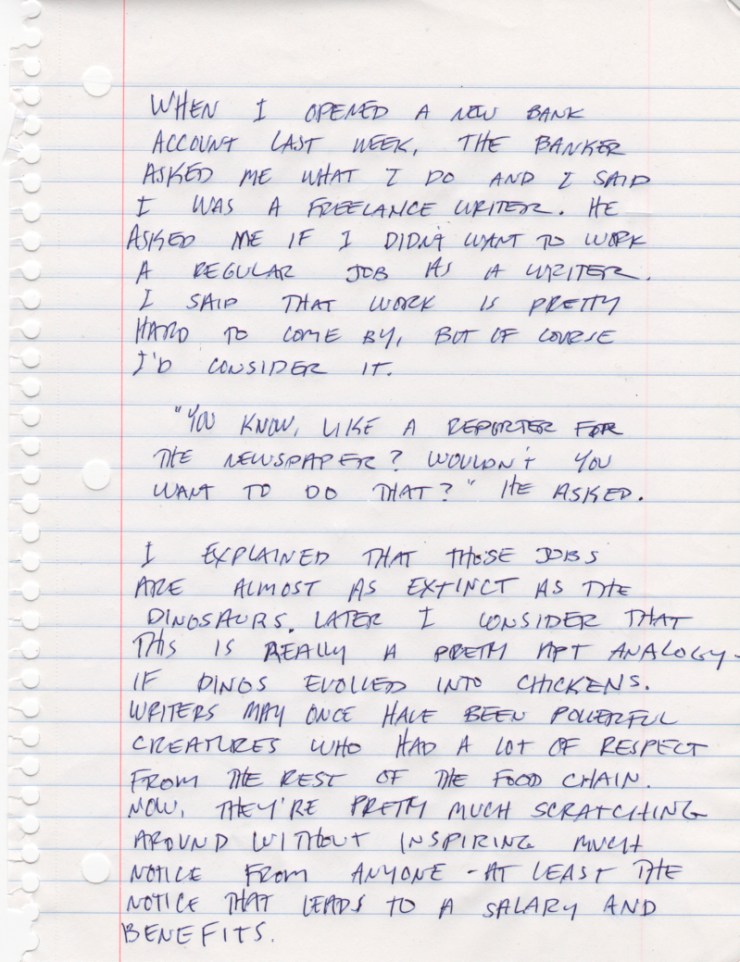 WHEN I OPENED A NEW BANK
ACCOUNT LAST WEEK, THE BANKER
ASKED ME WHAT I DO AND I SAID
I WAS A FREELANCE WRITER. HE
ASKED ME IF I DIDN'T WANT TO WORK
A REGULAR JOB AS A WRITER.
I SAID THAT WORK IS PRETTY
HARD TO COME BY, BUT OF COURSE
I'D CONSIDER IT.
"YOU KNOW, LIKE A REPORTER FOR
THE NEWSPAPER? WOULDN'T YOU
WANT TO DO THAT?" HE ASKED.
I EXPLAINED THAT THOSE JOBS
ARE ALMOST AS EXTINCT AS THE
DINOSAURS. LATER I CONSIDER THAT
THIS IS REALLY A PRETTY APT ANALOGY -
IF DINOS EVOLVED INTO CHICKENS.
WRITERS MAY ONCE HAVE BEEN POWERFUL
CREATURES WHO HAD A LOT OF RESPECT
FROM THE REST OF THE FOOD CHAIN.
NOW, THEY'RE PRETTY MUCH SCRATCHING
AROUND WITHOUT INSPIRING MUCH
NOTICE FROM ANYONE - AT LEAST THE
NOTICE THAT LEADS TO A SALARY AND
BENEFITS.